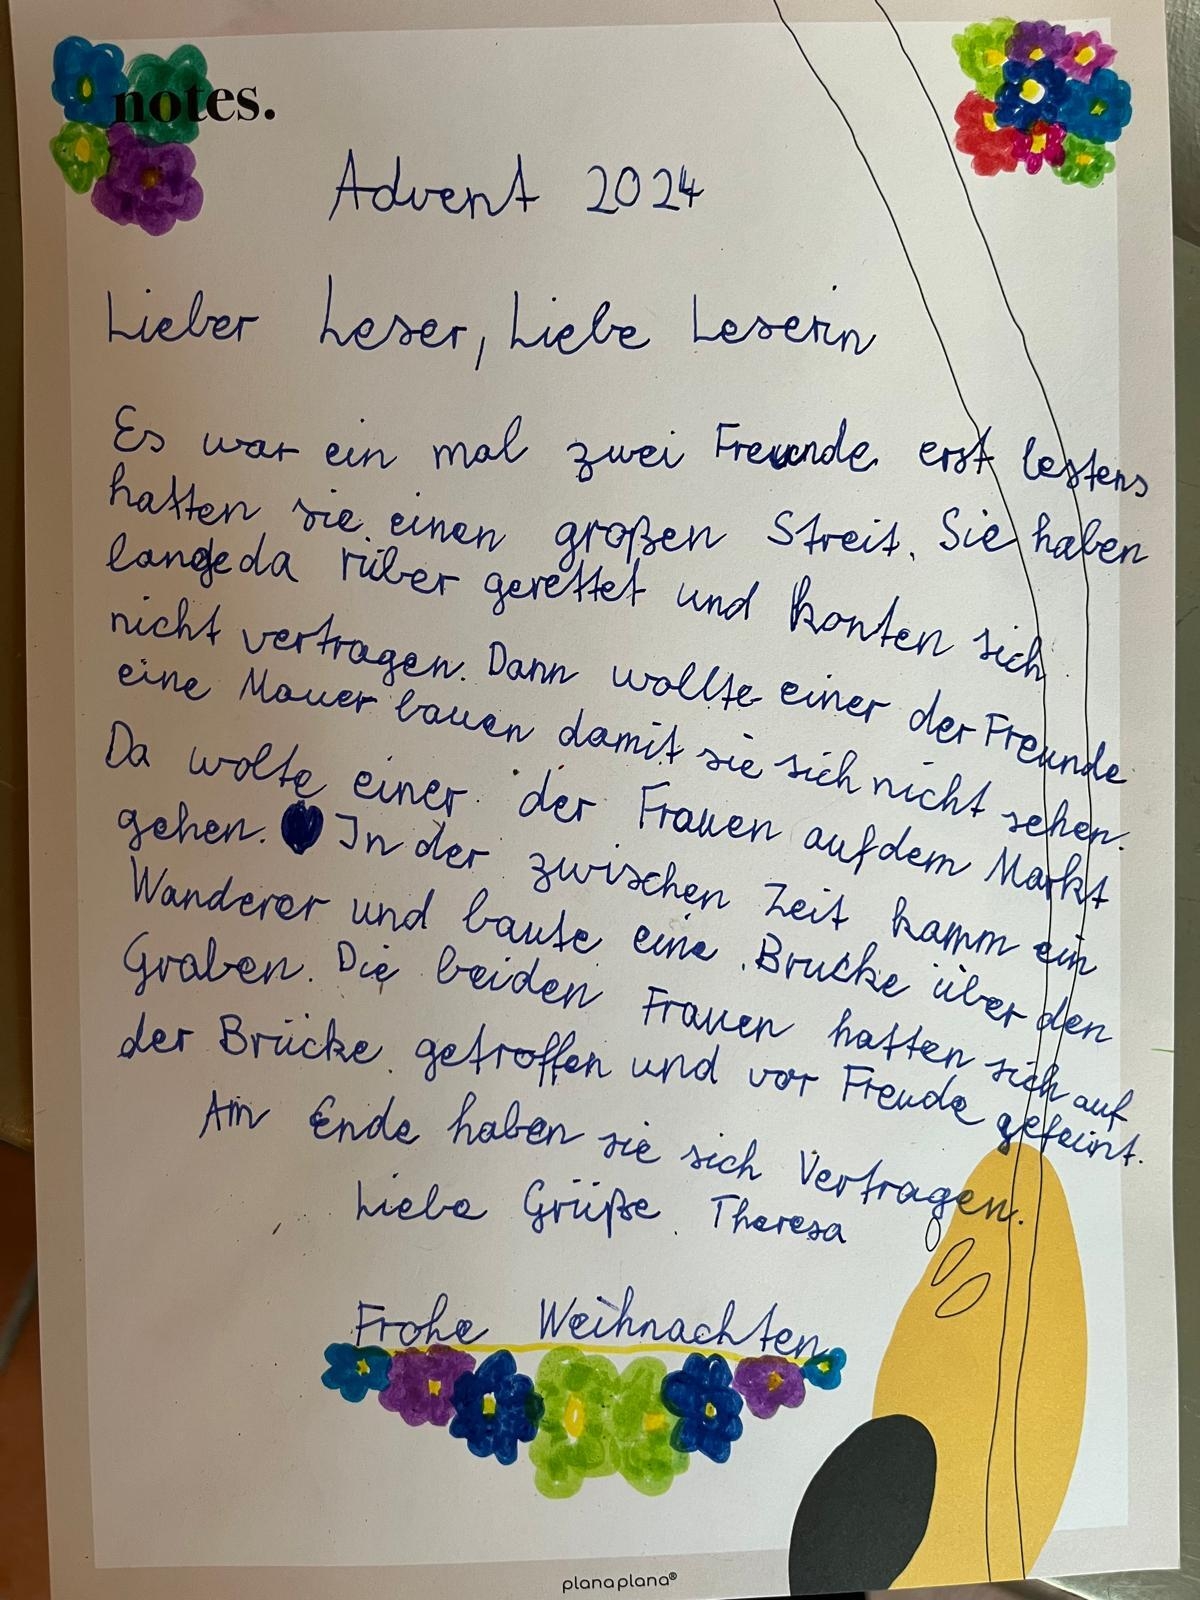 notes.
Advent 2024
Lieber Leser, Liebe Leserin
Es war ein mal zwei Freunde erst lestens
hatten sie einen großen Streit. Sie haben
lange da rüber gerettet und konten sich
nicht vertragen. Dann wollte einer der Freunde
eine Mauer bauen damit sie sich nicht sehen.
Da wolte einer der Frauen auf dem Markt
gehen. In der zwischen Zeit kamm ein
Wanderer und baute eine Brücke über den
Graben. Die beiden Frauen hatten sich auf
der Brücke getroffen und vor Freude gefeint.
Am Ende haben sie sich Vertragen.
Liebe Grüße Theresa
Frohe Weihnachten
planaplana®